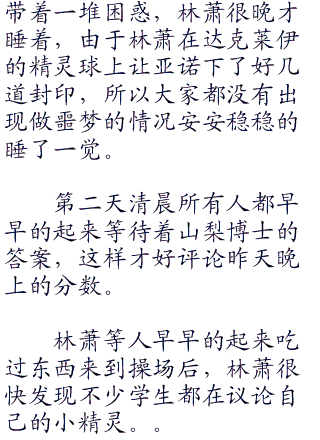 带着一堆困惑，林萧很晚才
睡着，由于林萧在达克莱伊
的精灵球上让亚诺下了好几
道封印，所以大家都没有出
现做噩梦的情况安安稳稳的
睡了一觉。
第二天清晨所有人都早
早的起来等待着山梨博士的
答案，这样才好评论昨天晚
上的分数。
林萧等人早早的起来吃
过东西来到操场后，林萧很
快发现不少学生都在议论自
己的小精灵。。